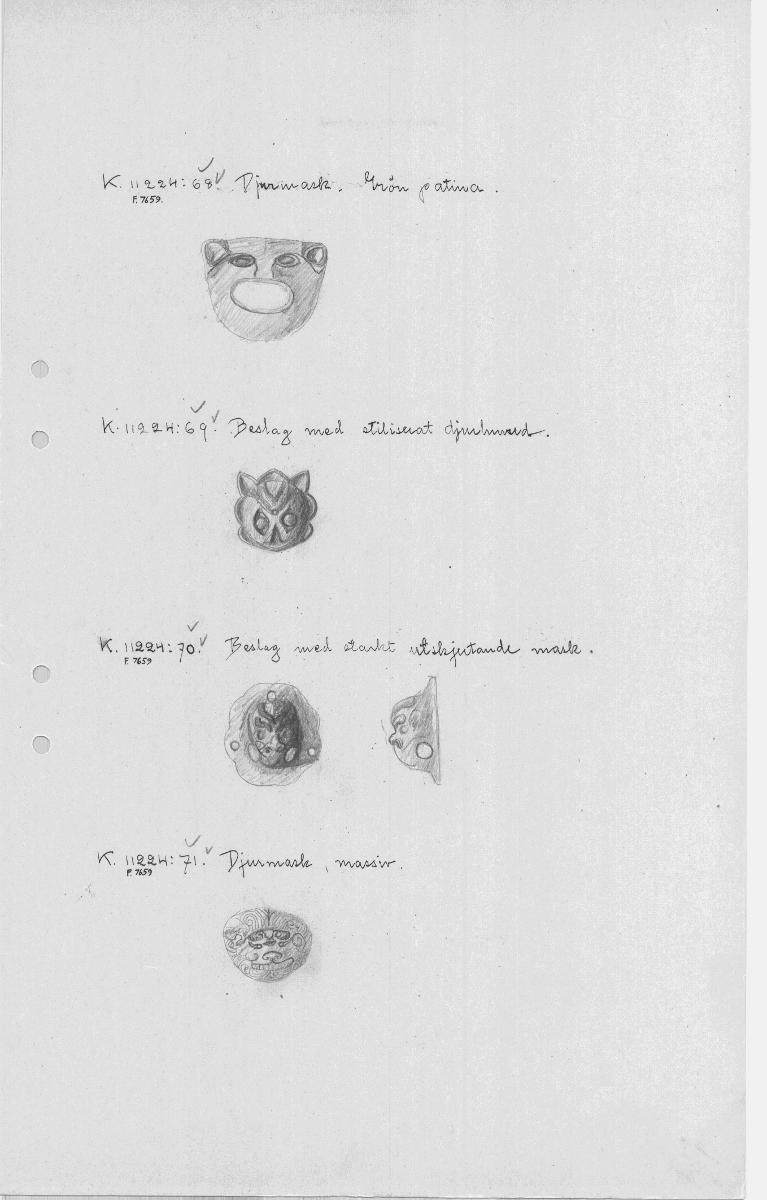 K. 11224:68. Djurmask. Grön patina.
F. 7659.
K. 11224:69. Beslag med stiliserat djurhuvud.
K. 11224:70. Beslag med starkt utskjutande mask.
F. 7659
K. 11224:71. Djurmask, massiv.
F. 7659